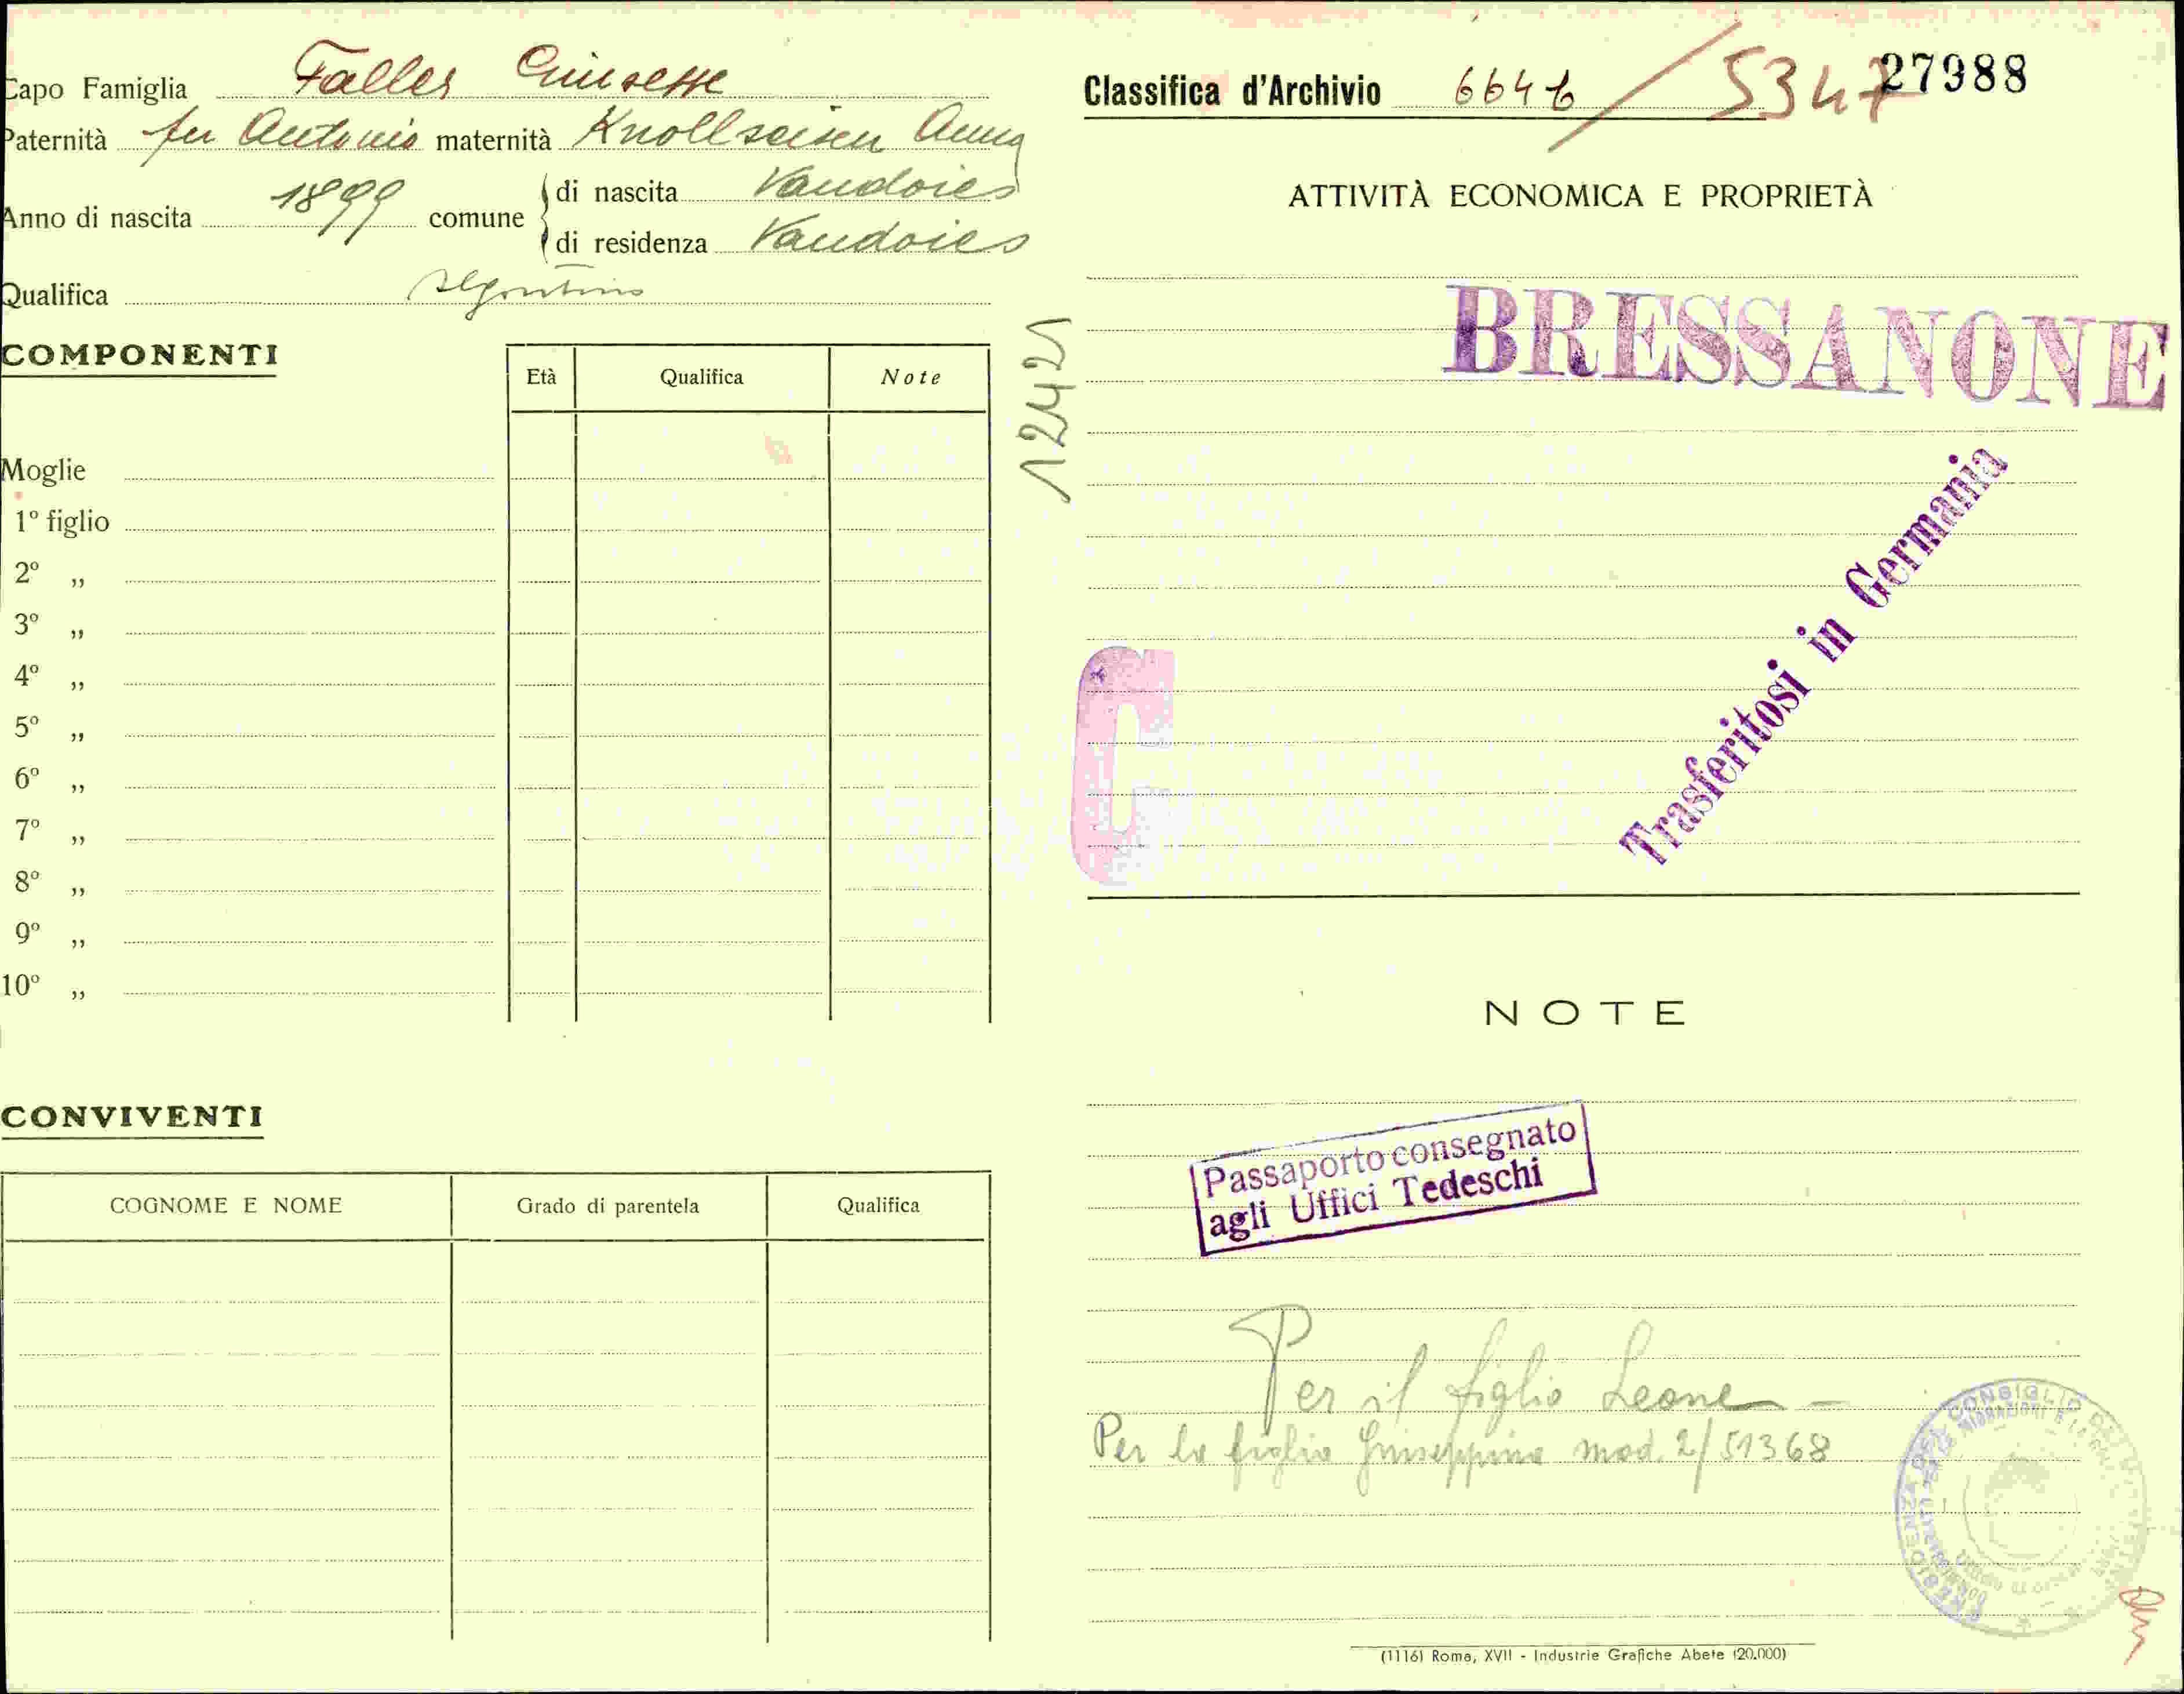 Capo Famiglia Faller Giuseppe
Paternità fu Antonio maternità Knollseisen Anna
Anno di nascita 1899 comune di nascita Vandoies
di residenza Vandoies
Qualifica segantino
COMPONENTI
Età Qualifica Note
Moglie
1º figlio
2º „
3º „
4º „
5º „
6º „
7º „
8º „
9º „
10º „
CONVIVENTI
COGNOME E NOME Grado di parentela Qualifica
12421
Classifica d'Archivio 6646 / 5347 27988
ATTIVITÀ ECONOMICA E PROPRIETÀ
BRESSANONE
Trasferitosi in Germania
C
NOTE
Passaporto consegnato
agli Uffici Tedeschi
Per il figlio Leone –
Per la figlia Giuseppina mod. 2/51368
(1116) Roma, XVII - Industrie Grafiche Abete (20.000)